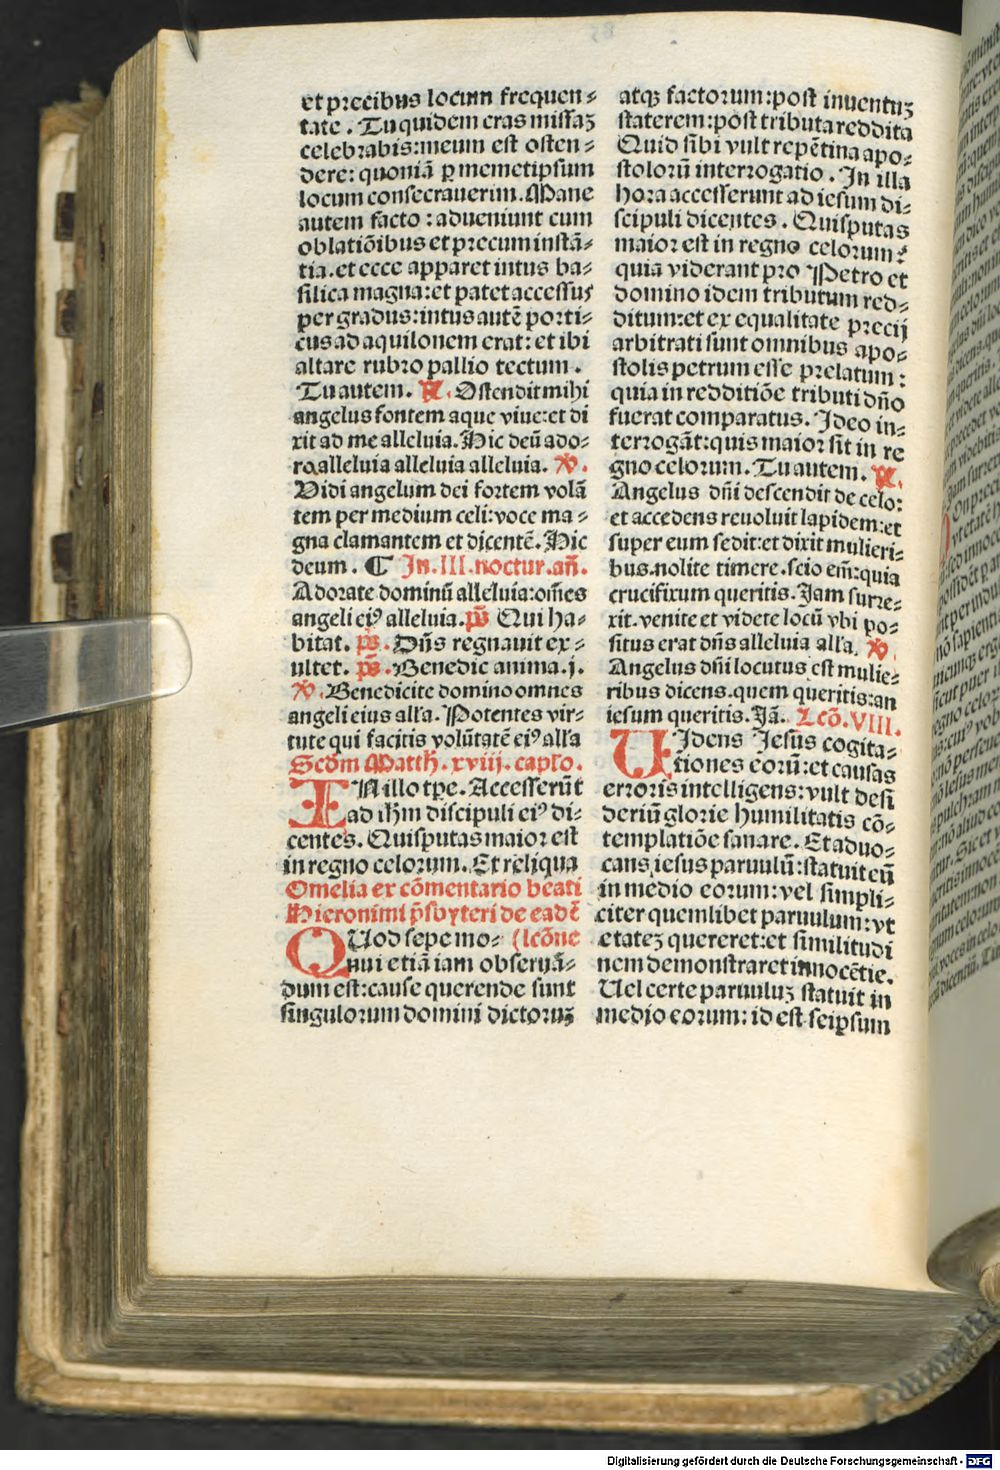 et precibus locum frequen⸗
tate . Tu quidem cras missaꝫ
celebrabis:meum est osten⸗
dere: quoniā ꝑ memetipsum
locum consecrauerim. Mane
autem facto : adueniunt cum
oblatiōibus et precum instā⸗
tia. et ecce apparet intus ba⸗
silica magna: et patet accessus
per gradus: intus autē porti⸗
cus ad aquilonem erat: et ibi
altare rubro pallio tectum .
Tu autem. ℟. Ostendit mihi
angelus fontem aque viue:et di
xit ad me alleluia. Hic deū ado⸗
ro. alleluia alleluia alleluia. ℣.
Vidi angelum dei fortem volā
tem per medium celi: voce ma⸗
gna clamantem et dicentē. Hic
deum . ¶ In. III. noctur. añ.
Adorate dominū alleluia: om̄es
angeli eiꝰ alleluia. p̄s Qui ha⸗
bitat. p̄s. Dn̄s regnauit ex⸗
ultet. p̄s. Benedic anima. j.
℣. Benedicite domino omnes
angeli eius alla. Potentes vir⸗
tute qui facitis volūtatē eiꝰ alla
Scd̄m Matth̄. xviij. caplo.
IN illo tꝑe. Accesserūt
ad ih̄m discipuli eiꝰ di⸗
centes. Quis putas maior est
in regno celorum. Et reliqua
Omelia ex cōmentario beati
Hieronimi p̄sbyteri de eadē
QUod sepe mo⸗ (lcōne
nui etiā iam obseruā⸗
dum est: cause querende sunt
singulorum domini dictoruꝫ
atqꝫ factorum:post inuentuꝫ
staterem:post tributa reddita
Quid sibi vult repētina apo⸗
stolorū interrogatio . In illa
hora accesserunt ad iesum di⸗
scipuli dicentes . Quis putas
maior est in regno celorum?
quia viderant pro Petro et
domino idem tributum red⸗
ditum: et ex equalitate precij
arbitrati sunt omnibus apo⸗
stolis petrum esse prelatum :
quia in redditiōe tributi dn̄o
fuerat comparatus. Ideo in⸗
terrogāt: quis maior sit in re
gno celorum. Tu autem. ℟.
Angelus dn̄i descendit de celo:
et accedens reuoluit lapidem: et
super eum sedit: et dixit mulieri⸗
bus. nolite timere. scio em̄: quia
crucifixum queritis. Jam surre⸗
xit. venite et videte locū vbi po⸗
situs erat dn̄s alleluia alla. ℣
Angelus dn̄i locutus est mulie⸗
ribus dicens. quem queritis: an
iesum queritis. Jā. Lcō. VIII.
UIdens Iesus cogita⸗
tiones eorū: et causas
erroris intelligens: vult desi
deriū glorie humilitatis cō⸗
templatiōe sanare. Et aduo⸗
cans iesus paruulū: statuit eū
in medio eorum: vel simpli⸗
citer quemlibet paruulum: vt
etateꝫ quereret: et similitudi
nem demonstraret innocētie.
Uel certe paruuluꝫ statuit in
medio eorum: id est seipsum
Digitalisierung gefördert durch die Deutsche Forschungsgemeinschaft - DFG